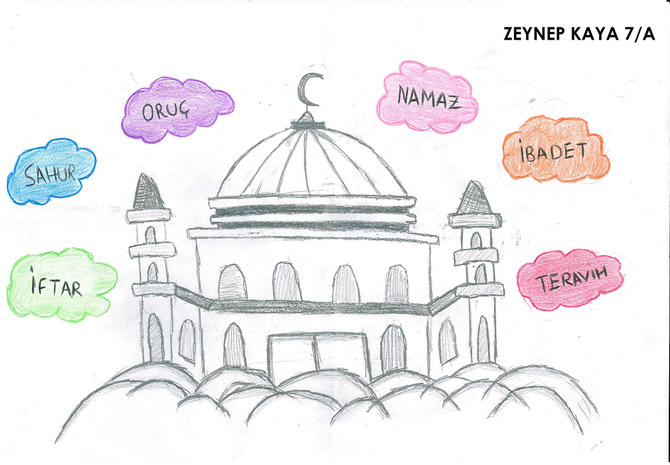 ZEYNEP KAYA 7/A
ORUÇ
NAMAZ
SAHUR
İBADET
İFTAR
TERAVIH